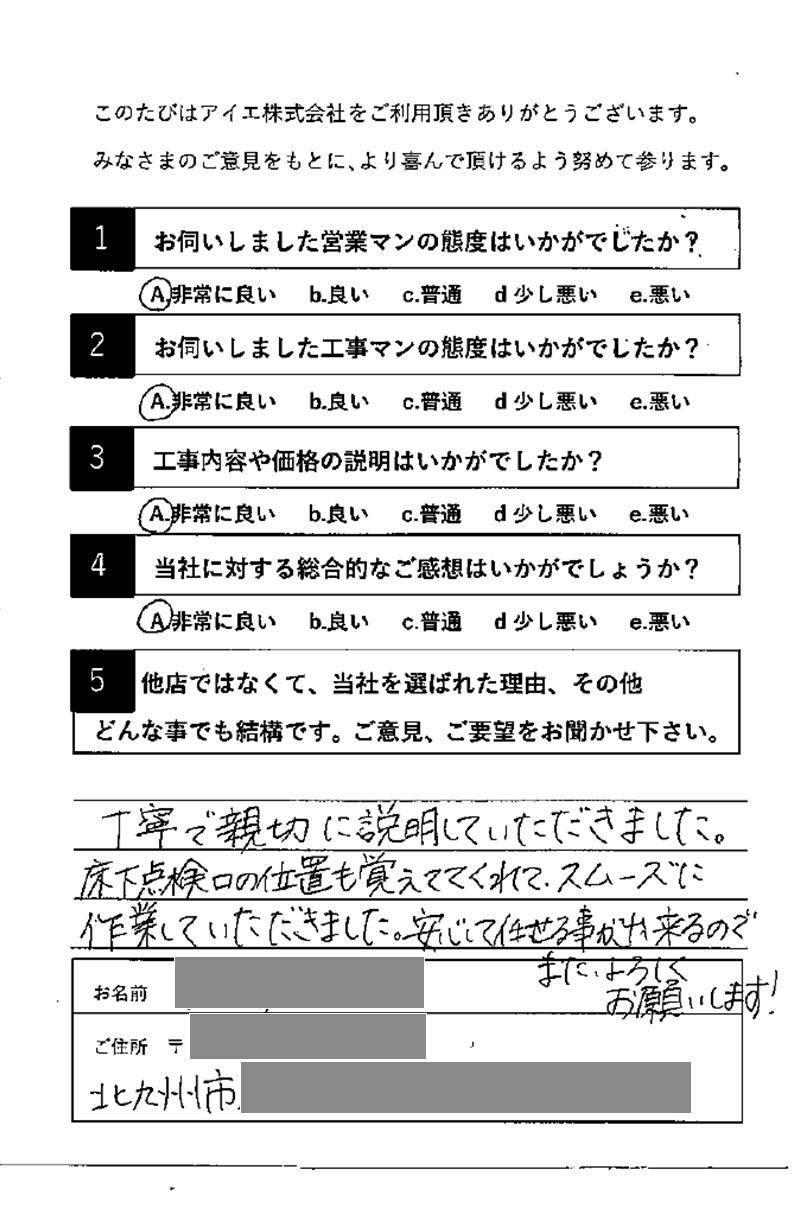 このたびはアイエ株式会社をご利用頂きありがとうございます。
みなさまのご意見をもとに、より喜んで頂けるよう努めて参ります。
1 お伺いしました営業マンの態度はいかがでしたか？
A.非常に良い b.良い c.普通 d 少し悪い e.悪い
2 お伺いしました工事マンの態度はいかがでしたか？
A.非常に良い b.良い c.普通 d 少し悪い e.悪い
3 工事内容や価格の説明はいかがでしたか？
A.非常に良い b.良い c.普通 d 少し悪い e.悪い
4 当社に対する総合的なご感想はいかがでしょうか？
A.非常に良い b.良い c.普通 d 少し悪い e.悪い
5 他店ではなくて、当社を選ばれた理由、その他
どんな事でも結構です。ご意見、ご要望をお聞かせ下さい。
丁寧で親切に説明していただきました。
床下点検口の位置も覚えててくれて、スムーズに
作業していただきました。安心して任せる事が出来るので
また、よろしく
お願いします！
お名前
ご住所 〒
北九州市